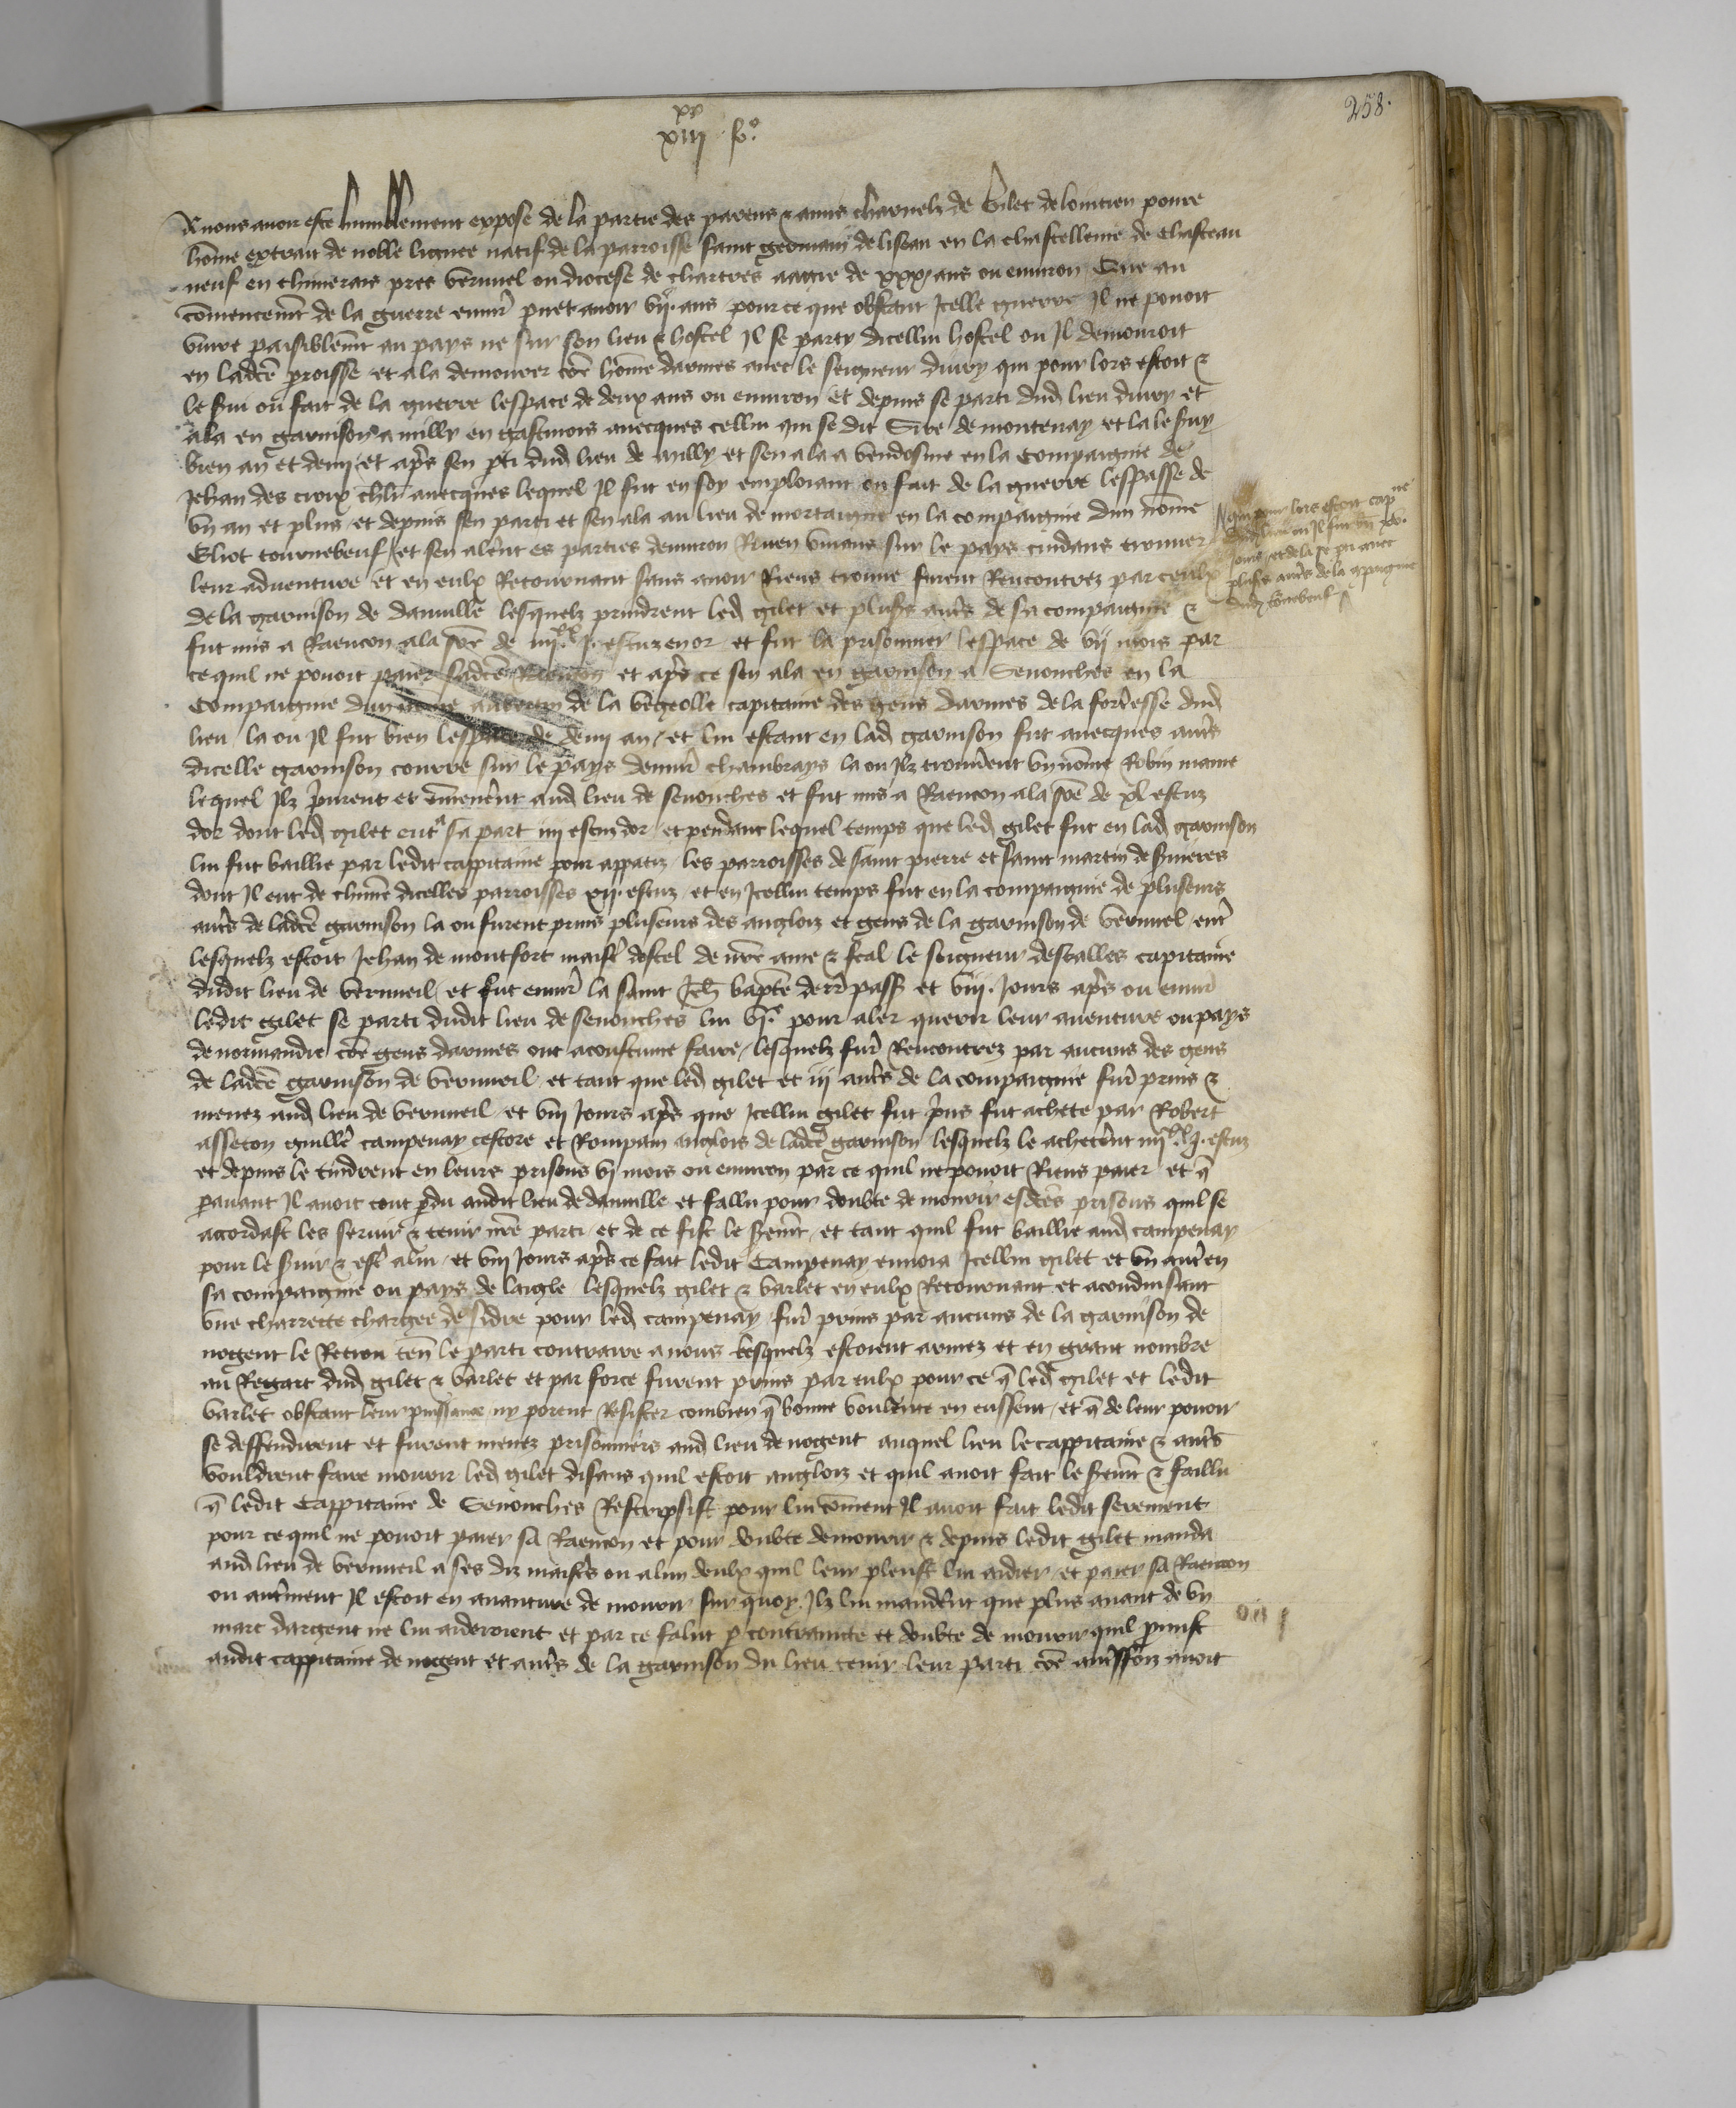 258.
xx
xiii fo.
A nous avoir este humblement expose de la partie des parens & amis charnelz de Gilet de lointren povre
home extrait de noble lignee natif de la parroisse saint germain de lisean en la chastellenie de Chasteau
neuf en thimerais pres vernuel ou diocese de chartres aagie de xxx ans ou environ Que au
comencemt de la guerre envir puet avoir vij ans pour ce que obstant Icelle guerre Il ne povoit
vivre paisiblemt au pays ne sur son lieu & hostel Il se party dicellui hostel ou Il demouroit
en ladce proisse et ala demourer coe home darmes avec le seigneur divry qui pour lors estoit &
le svi ou fait de la guerre lespace de deux ans ou environ et depuis se parti dud lieu divry et
ala en garnison a milly en gastinois avecques cellui qui se dit Sire de montenay et la le svy
bien an et demi et apres sen pti dud lieu de milly et sen ala a vendosme en la compaignie de
Jehan des croix chlr avecques lequel Il fut en soy emploiant ou fait de la guerre lespasse de
un an et plus et depuis sen parti et sen ala au lieu de mortaigne en la compaignie dun nome
Eliot tournebeuf et sen alerent es parties denviron Rouen vivans sur le pays cuidans trouver
qui pour lors estoit capne
dudit lieu ou Il fut bn xv.
jours et de la se pti avec
plusrs autrs de la compaignie
dud tornebeuf
leur adventure et en eulx Retournant sans avoir Riens trouve furent Rencontrez par ceulx
de la garnison de danville lesquelz prindrent led gilet et plusrs autrs de sa compaignie &
fut mis a Raencon a la soe de iiij xx j. escuz en or et fut la prisonnier lespace de vij mois par
ce quil ne povoit paier sadce Raencon et apres ce sen ala en garnison a Senonches en la
Compaignie dun nome de la vegeolle capitaine des gens darmes de la forteresse dud
lieu la ou Il fut bien lespace de demi an et lui estant en lad garnison fut avecques autrs
dicelle garnison courre sur le pays denvir chambrays la ou Ilz trouverent un nome Robin mame
lequel Ilz prirent et emmenerent aud lieu de senonches et fut mis a Raencon a la soe de xl escuz
dor dont led gilet eut a sa part iiij escuz dor et pendant lequel temps que led gilet fut en lad garnison
lui fut baillie par ledit cappitaine pour appatiz les parroisses de saint pierre et saint martin de
dont Il eut de chune dicelles parroisses xij escuz et en Icellui temps fut en la compaignie de pluseurs
autrs de ladce garnison la ou furent prins pluseurs des anglois et gens de la garnison de vernuel entr
lesquelz estoit Jehan de montfort maistr dostel de nre ame & feal le seigneur descalles capitaine
dudit lieu de vernueil et fut envir la saint Jeh bapte derr pass et viij. Jours apres ou envir
ledit gilet se parti dudit lieu de senonches lui vj.e pour aler querir leur aventure ou pays
de normandie coe gens darmes ont acoustume faire lesquelz furt Rencontrez par aucuns des gens
de ladce garnison de vernueil et tant que led gilet et iij autrs de la compaignie furt prins &
menez aud lieu de vernueil et viij Jours apres que Icellui gilet fut prins fut achete par Robert
asseton guille campenay cestore et Rompain anglois de ladce garnison lesquelz le acheterent iiij xx j. escuz
et depuis le tindrent en leurs prisons vj mois ou environ par ce quil ne povoit Riens paier et q
paravant Il avoit tout pdu audit lieu de danville et fallu pour doubte de mourir esdces prisons quil se
accordast les servir & tenir nre parti et de ce fist le sermt et tant quil fut baillie aud campenay
pour le svir & estr a lui et viij Jours apres ce fait ledit Campenay envoia Icellui gilet et un autr en
sa compaignie ou pays de laigle lesquelz gilet & varlet en eulx Retournant et aconduisant
une charrette chargee de sidre pour led campenay furt prins par aucuns de la garnison de
nogent le Retrou tent le parti contraire a nous lesquelz estoient armez et en grant nombre
au Regart dud gilet & varlet et par force furent prins par eulx pour ce q led gilet et ledit
varlet obstant leur puissance ny porent Resister combien q bonne voulente en eussent et q de leur povoir
se deffendirent et furent menez prisonniers aud lieu de nogent auquel lieu le cappitaine & autrs
vouldrent faire mourir led gilet disans quil estoit anglois et quil avoit fait le sermt & faillu
q ledit Cappitaine de Senonches Rescripsist pour lui coment Il avoit fait ledit serement
pour ce quil ne povoit paier sa Raencon et pour doubte de mourir & depuis ledit gilet manda
aud lieu de vernueil a ses diz maistrs ou a lun deulx quil leur pleust lui aidier et paier sa Raencon
ou autrment Il estoit en avanture de mourir sur quoy Ilz lui manderent que plus avant de un
marc dargent ne lui aideroient et par ce falut p contrainte et doubte de mourir quil pmist
audit cappitaine de nogent et autrs de la garnison du lieu tenir leur parti coe autrffoiz avoit